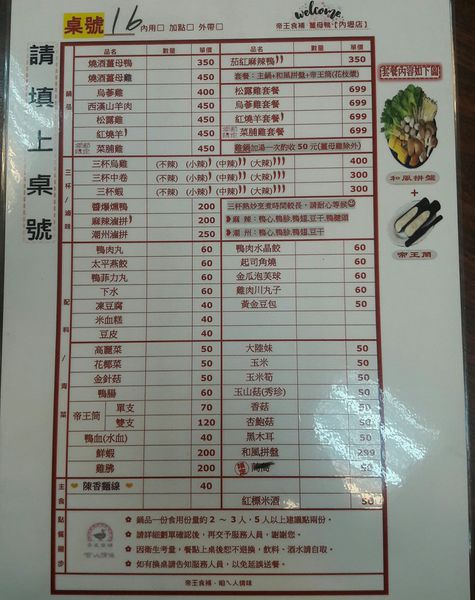 welcome
桌號 16 內用□ 加點□ 外帶□
帝王食補 薑母鴨【內壢店】
請填上桌號
品名 數量 單價 品名 數量 單價
鍋品
燒酒薑母鴨 350 茄紅麻辣鴨 350
燒酒薑母雞 450 套餐：主鍋+和風拼盤+帝王筒(花枝漿)
烏蔘雞 400 松露雞套餐 699
西漢山羊肉 450 烏蔘雞套餐 699
松露雞 450 松露雞套餐 699
紅燒羊 450 紅燒羊套餐 699
菜脯雞 450 菜脯雞套餐 699
雞鍋加湯一次酌收50元(薑母雞除外)
三杯/滷味
三杯烏雞 (不辣) (小辣) (中辣) (大辣) 300
三杯中卷 (不辣) (小辣) (中辣) (大辣) 300
三杯蝦 (不辣) (小辣) (中辣) (大辣) 300
醬爆燻鴨 200 三杯熱炒烹煮時間較長，請耐心等候
麻辣滷拼 200 麻 辣：鴨心,鴨胗,鴨翅,豆干,鴨腱頭
潮州滷拼 250 潮 州：鴨心,鴨胗,鴨翅,豆干
配料/青菜
鴨肉丸 60 鴨肉水晶餃 60
太平燕餃 60 起司角燒 60
鴨菲力丸 60 金瓜泡芙球 60
下水 60 雞肉川丸子 60
凍豆腐 40 黃金豆包 50
米血糕 40
豆皮 40
高麗菜 50 大陸妹 50
花椰菜 50 玉米 50
金針菇 50 玉米筍 50
鴨腸 60 玉山菇(秀珍) 50
帝王筒 單支 70 香菇 50
雙支 120 杏鮑菇 50
鴨血(水血) 40 黑木耳 50
鮮蝦 200 和風拼盤 299
雞胇 200 50
主食
陳香麵線 40
紅標米酒 50
點餐撇步
鍋品一份食用份量約2～3人，5人以上建議點兩份。
請詳細劃單確認後，再交予服務人員，謝謝您。
因衛生考量，餐點上桌後恕不退換，飲料、酒水請自取。
如有換桌請告知服務人員，以免延誤送餐。
帝王食補，咱ㄟ人情味
套餐內容如下圖
和風拼盤
+
帝王筒